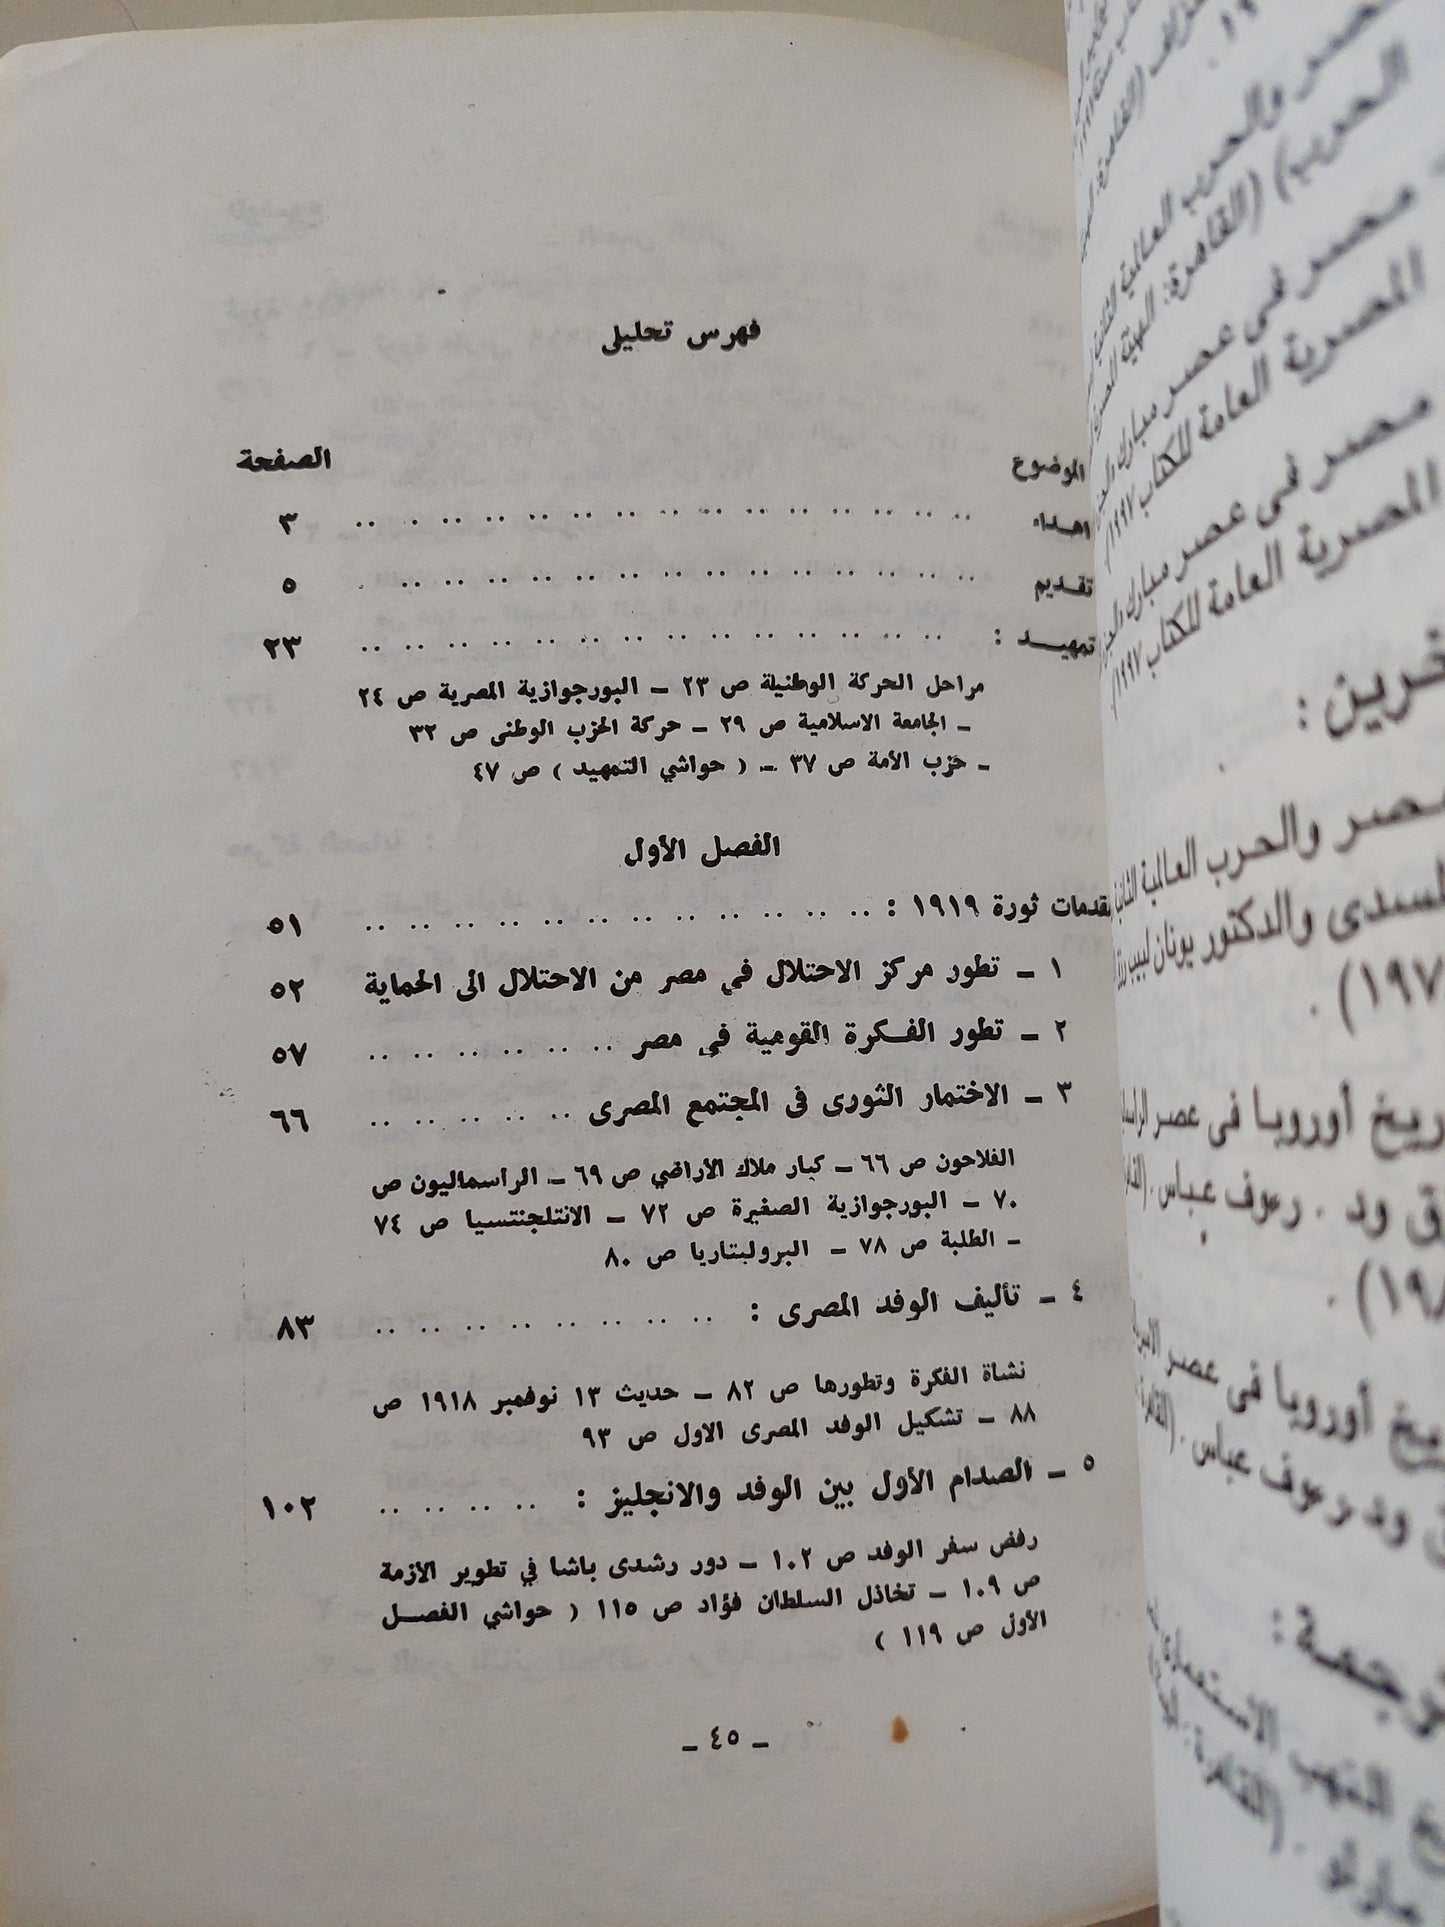 فهرس تحليلى
الموضوع الصفحة
اهداء .. .. .. .. .. .. .. .. .. .. .. .. .. .. ٣
تقديم .. .. .. .. .. .. .. .. .. .. .. .. .. .. ٥
تمهيــد : .. .. .. .. .. .. .. .. .. .. .. .. .. .. ٢٣
مراحل الحركة الوطنية ص ٢٣ ـ البورجوازية المصرية ص ٢٤
ـ الجامعة الاسلامية ص ٢٩ ـ حركة الحزب الوطنى ص ٣٢
ـ حزب الأمة ص ٣٧ ـ ( حواشي التمهيد ) ص ٤٧
الفصل الأول
مقدمات ثورة ١٩١٩ : .. .. .. .. .. .. .. .. .. .. .. .. ٥١
١ ـ تطور مركز الاحتلال في مصر من الاحتلال الى الحماية ٥٢
٢ ـ تطور الفـكرة القومية في مصر .. .. .. .. .. .. ٥٧
٣ ـ الاختمار الثورى فى المجتمع المصرى .. .. .. .. .. ٦٦
الفلاحون ص ٦٦ ـ كبار ملاك الأراضي ص ٦٩ ـ الرأسماليون ص
٧٠ ـ البورجوازية الصغيرة ص ٧٢ ـ الانتلجنتسيا ص ٧٤
ـ الطلبة ص ٧٨ ـ البرولبتاريا ص ٨٠
٤ ـ تأليف الوفد المصرى : .. .. .. .. .. .. .. .. ٨٣
نشاة الفكرة وتطورها ص ٨٢ ـ حديث ١٣ نوفمبر ١٩١٨ ص
٨٨ ـ تشكيل الوفد المصرى الاول ص ٩٣
٥ ـ الصدام الأول بين الوفد والانجليز : .. .. .. .. ١٠٢
رفض سفر الوفد ص ١٠٢ ـ دور رشدى باشا في تطوير الأزمة
ص ١٠٩ ـ تخاذل السلطان فؤاد ص ١١٥ ( حواشي الفصــل
الأول ص ١١٩ )
ـ ٤٥ ـ
مصر والحرب العالمية
الحرب) (القاهرة: الهيئة
مصر فى عصر مبارك
المصرية العامة للكتاب ١٩٩٧)
مصر فى عصر مبارك
المصرية العامة للكتاب ١٩٩٧)
مصر والحرب العالمية الثانية
والدكتور يونان لبيب رزق
أوروبا فى عصر
ود . رءوف عباس .
أوروبا فى عصر
رءوف عباس .